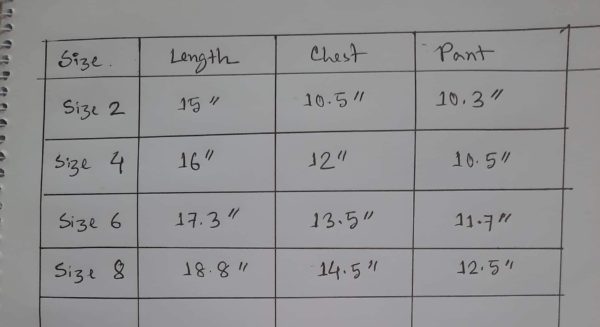 Size. Length Chest Pant
Size 2 15" 10.5" 10.3"
Size 4 16" 12" 10.5"
Size 6 17.3" 13.5" 11.7"
Size 8 18.8" 14.5" 12.5"